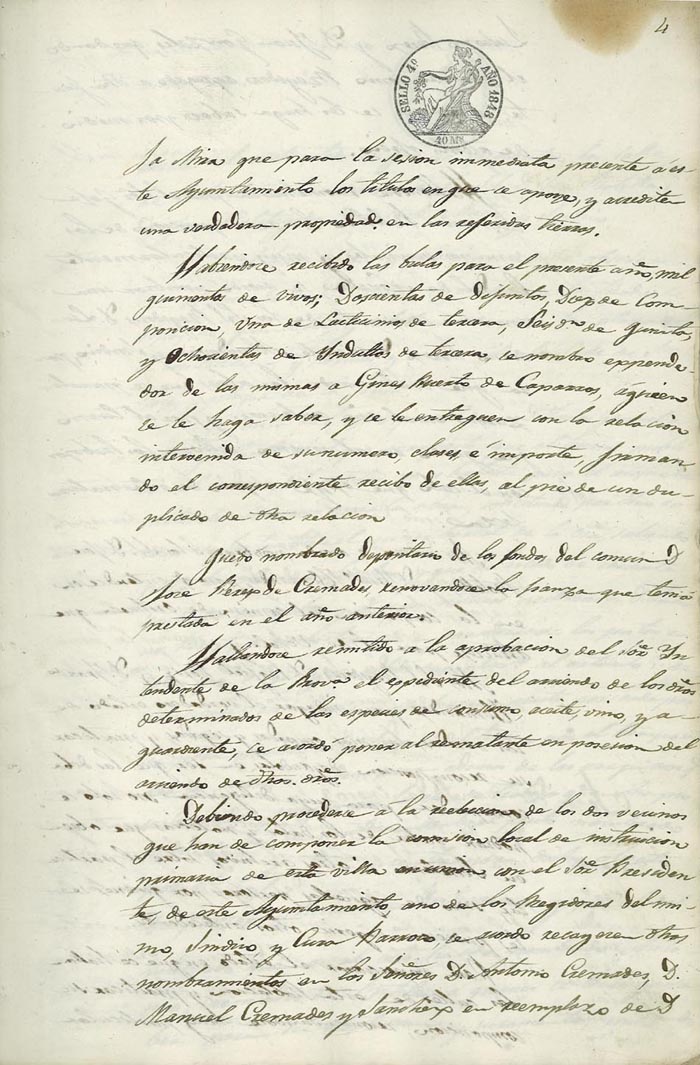 4
SELLO 4º AÑO 1848
40 MS.
la Mira que para la sesion immediata presente á es-
te Ayuntamiento los titulos en que se apoye, y acredite
una verdadera propiedad en las referidas tierras.
Habiendose recibido las bulas para el presente año, mil
quinientas de vivos; Doscientas de difuntos, Dos de Com-
posicion, Una de Lacticinios de tercera, Seis de
y Ochocientas de Yndultos de tercera, se nombro expende-
dor de las mismas a Gines Puerto de Caparros, á quien
se le haga saber, y se le entreguen con la relacion
intervenida de su numero, clases, é importe, firman-
do el correspondiente recibo de ellas, al pie de un du-
plicado de dha relacion
Quedo nombrado depositario de los fondos del comun D.
Jose Perez de Cremades, renovandose la fianza que tenia
prestada en el año anterior.
Hallandose remitido a la aprobacion del Sor. Yn-
tendente de la Prova. el espediente del arriendo de los dros
determinados de las especies de consumo aceite, vino, y a-
guardiente, se acordó poner al rematante en posesion del
arriendo de dhos. dros.
Debiendo procederse á la reeleccion de los dos vecinos
que han de componer la comision local de instruccion
primaria de esta villa en union con el Sor. Presiden-
te, de este Ayuntamiento, uno de los Regidores del mis-
mo, Sindico y Cura Parroco, se acordo recayeren dhos
nombramientos en los Señores D. Antonio Cremades, D.
Manuel Cremades y Sanchez en reemplazo de D